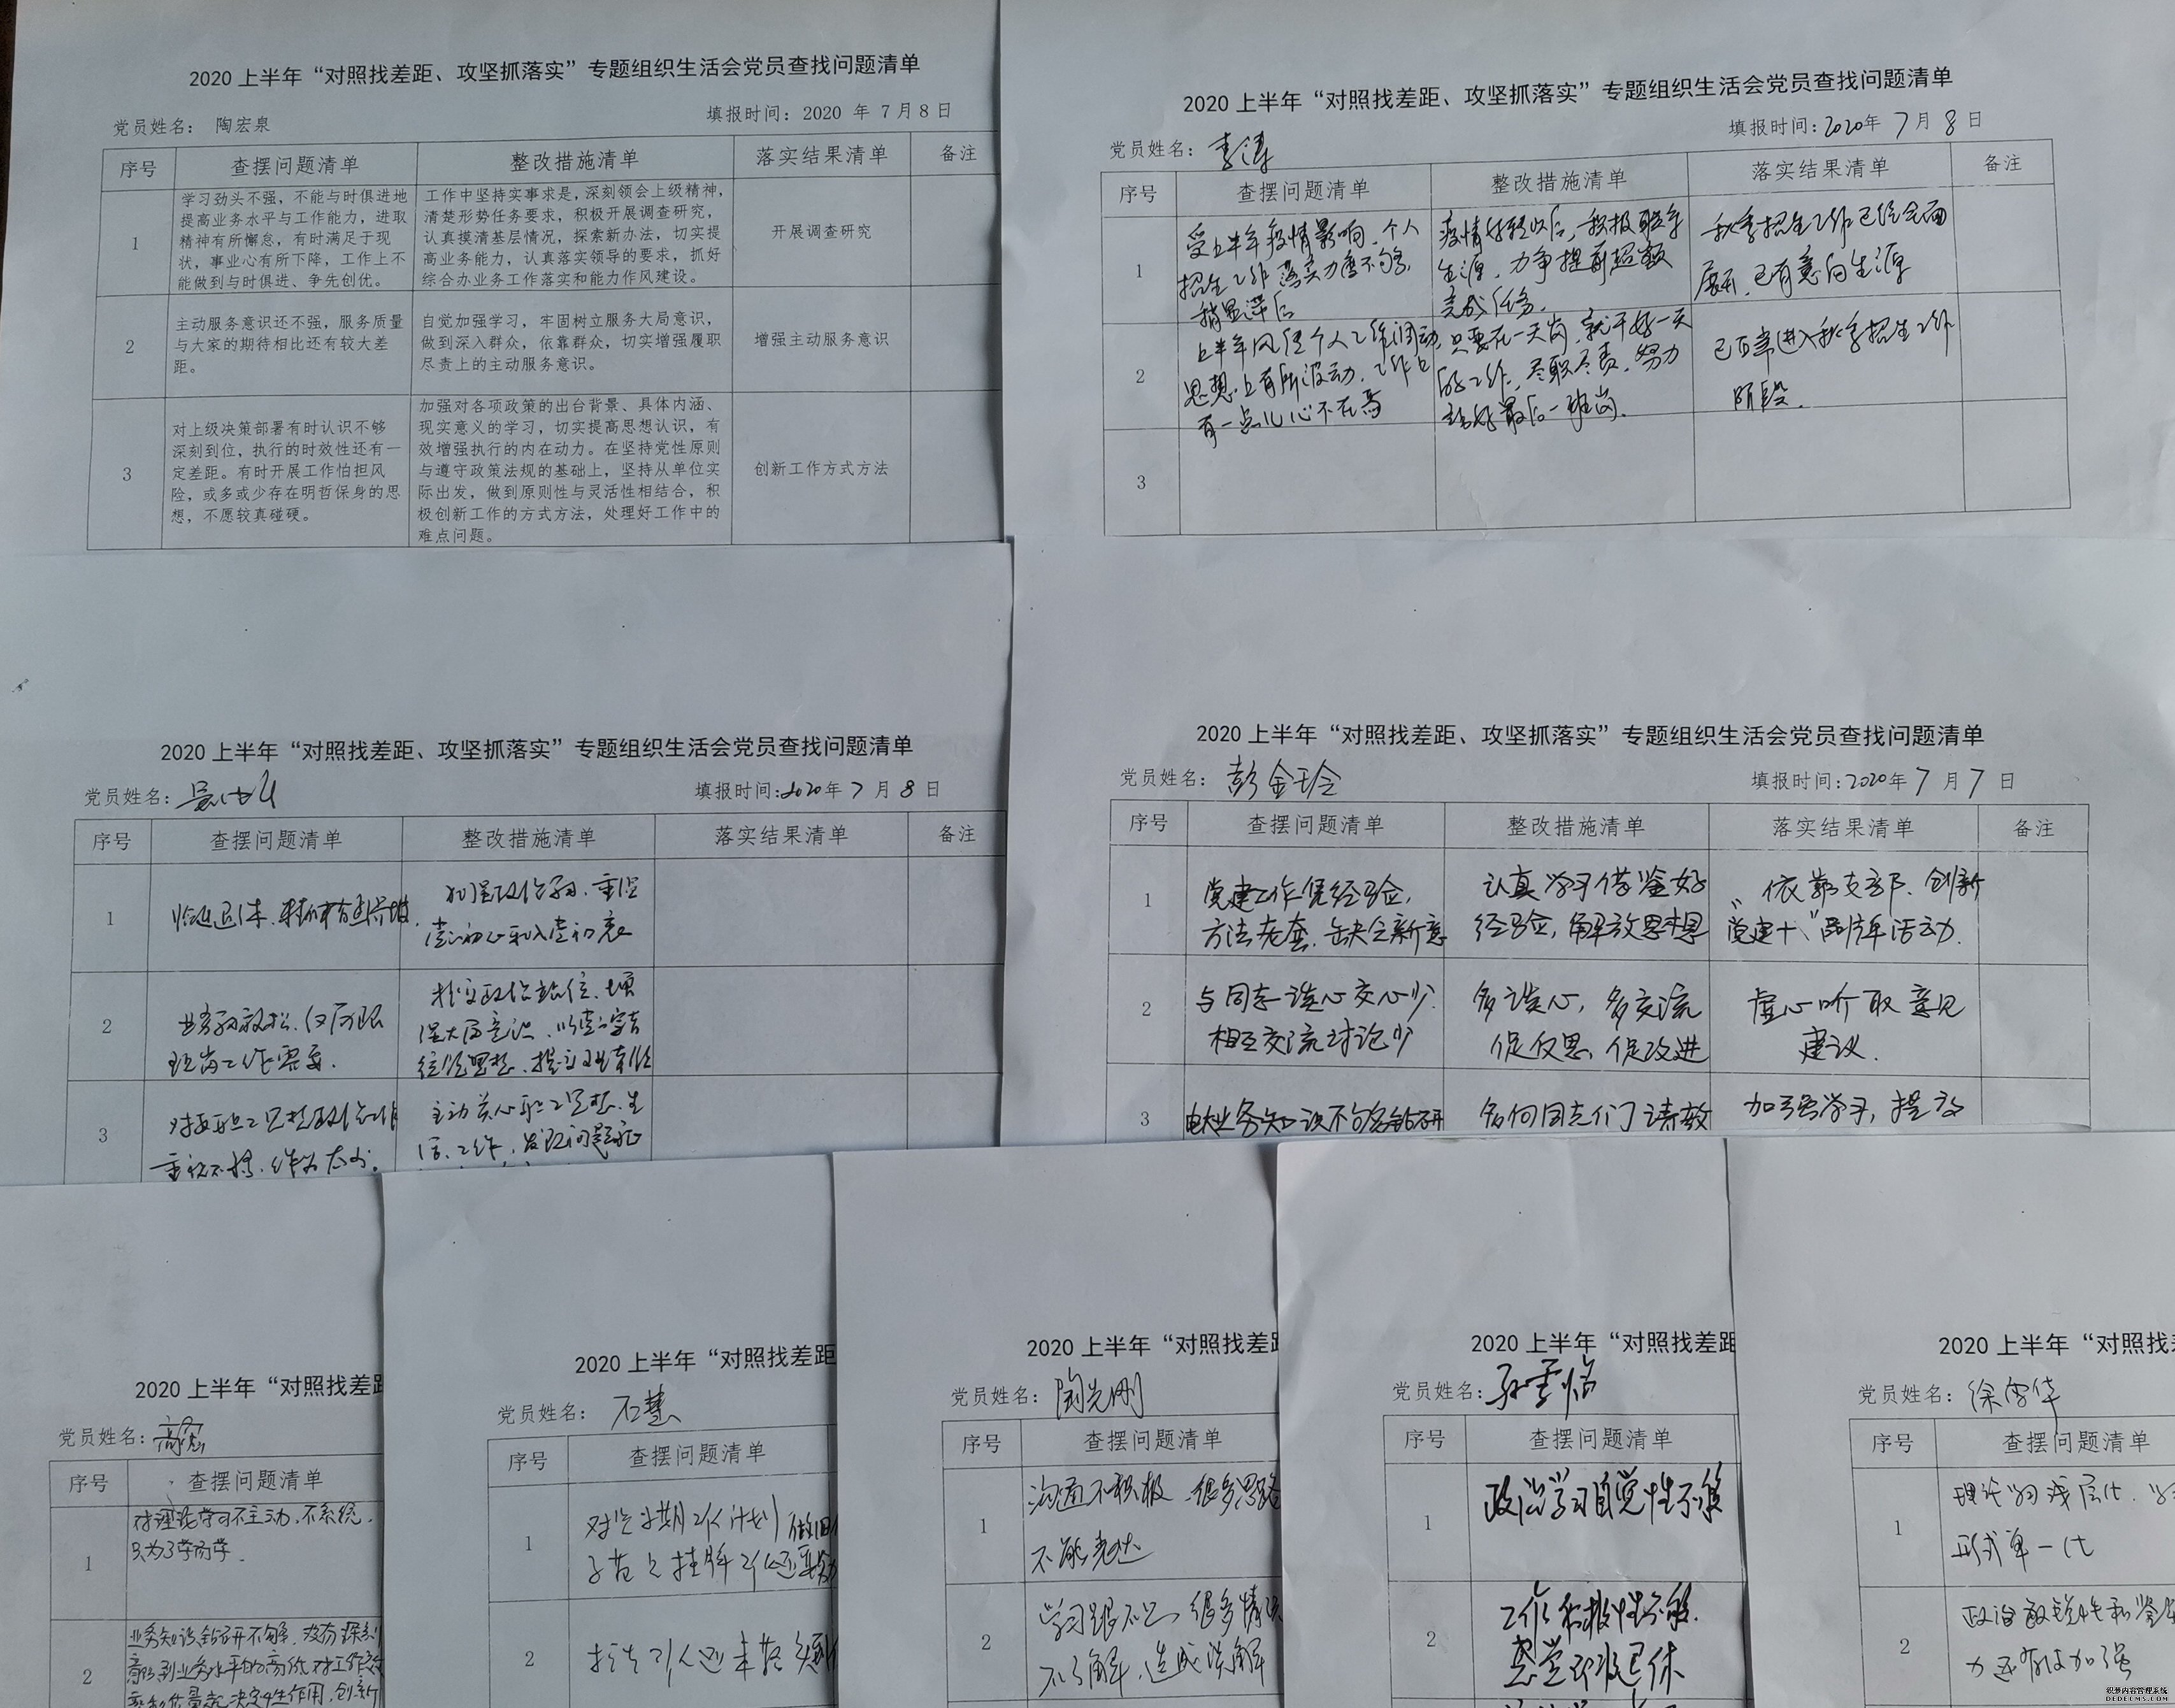 2020 上半年“对照找差距、攻坚抓落实”专题组织生活会党员查找问题清单
党员姓名： 陶宏泉
填报时间：2020 年 7月8日
序号 查摆问题清单 整改措施清单 落实结果清单 备注
1
学习劲头不强，不能与时俱进地
提高业务水平与工作能力，进取
精神有所懈怠，有时满足于现
状，事业心有所下降，工作上不
能做到与时俱进、争先创优。
工作中坚持实事求是，深刻领会上级精神，
清楚形势任务要求，积极开展调查研究，
认真摸清基层情况，探索新办法，切实提
高业务能力，认真落实领导的要求，抓好
综合办业务工作落实和能力作风建设。
开展调查研究
2
主动服务意识还不强，服务质量
与大家的期待相比还有较大差
距。
自觉加强学习，牢固树立服务大局意识，
做到深入群众，依靠群众，切实增强履职
尽责上的主动服务意识。
增强主动服务意识
3
对上级决策部署有时认识不够
深刻到位，执行的时效性还有一
定差距。有时开展工作怕担风
险，或多或少存在明哲保身的思
想，不愿较真碰硬。
加强对各项政策的出台背景、具体内涵、
现实意义的学习，切实提高思想认识，有
效增强执行的内在动力。在坚持党性原则
与遵守政策法规的基础上，坚持从单位实
际出发，做到原则性与灵活性相结合，积
极创新工作的方式方法，处理好工作中的
难点问题。
创新工作方式方法
2020 上半年“对照找差距、攻坚抓落实”专题组织生活会党员查找问题清单
党员姓名： 李涛
填报时间：2020年 7月 8日
序号 查摆问题清单 整改措施清单 落实结果清单 备注
1
受上半年疫情影响，个人
招生工作落实力度不够，
稍显滞后
疫情好转以后，积极联系
生源，力争提前超额
完成任务.
秋季招生工作已经全面
展开，已有意向生源
2
上半年 个人工作调动，
思想上有所波动，工作上
有一点儿心不在焉
只要在一天岗，就干好一天
的工作，尽职尽责，努力
站好最后一班岗.
已正常进入秋季招生工作
阶段.
3
2020 上半年“对照找差距、攻坚抓落实”专题组织生活会党员查找问题清单
党员姓名：
填报时间：2020年 7月 8日
序号 查摆问题清单 整改措施清单 落实结果清单 备注
1
临近退休，
加强政治学习，重温
入党初衷
2
业务学习放松，仅局限
现岗工作需要.
政治站位，增
强大局意识，
3
对教职工思想政治工作
重视不够，作为不大.
主动关心职工思想、生
活、工作，发现问题
2020 上半年“对照找差距、攻坚抓落实”专题组织生活会党员查找问题清单
党员姓名： 彭金玲
填报时间：2020年 7月 7日
序号 查摆问题清单 整改措施清单 落实结果清单 备注
1
党建工作凭经验，
方法老套，缺乏新意
认真学习借鉴好
经验，解放思想
依靠支部，创新
“党建+” 活动.
2
与同志谈心交心少，
相互交流讨论少
多谈心，多交流
促反思，促改进
虚心听取意见
建议.
3
电大业务知识不够钻研
多向同志们请教
加强学习，提
2020 上半年“对照找差
党员姓名：
序号 查摆问题清单
1
对理论学习不主动，不系统，
只为了学而学.
2
业务知识钻研不够，
2020 上半年“对照找差距
党员姓名： 石慧
序号 查摆问题清单
1
对学期工作计划
2
2020 上半年“对照找差
党员姓名： 陶光刚
序号 查摆问题清单
1
沟通不积极，很多思路
不能表达
2
学习跟不上，很多情况
不了解，造成误解
2020 上半年“对照找差距
党员姓名： 孙云临
序号 查摆问题清单
1
政治学习自觉性不够
2
工作积极性不够.
2020 上半年“对照找
党员姓名：
序号 查摆问题清单
1
理论学习浅层化，
形式单一化
2
政治敏锐性和鉴
力还有待加强
织梦内容管理系统
DEDECMS.COM